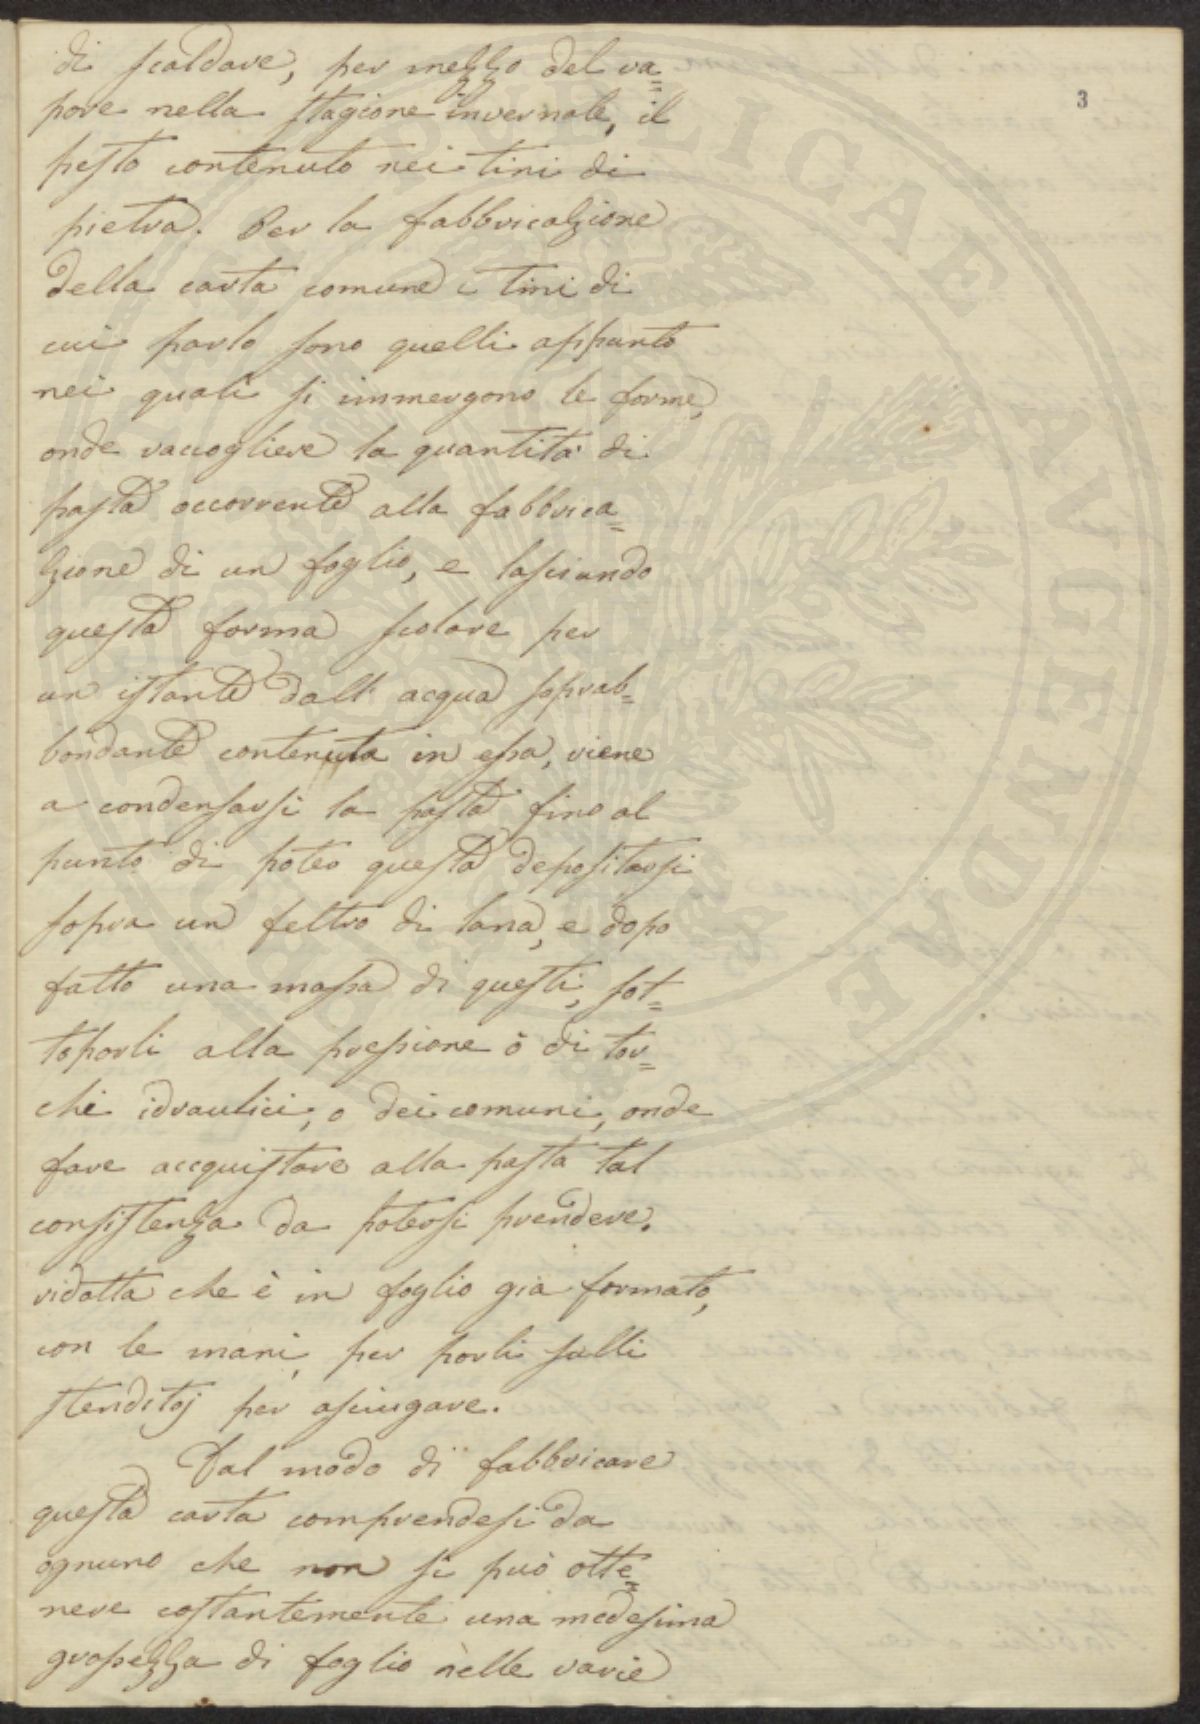 di scaldare, per mezzo del va=
pore nella stagione invernale, il
pesto contenuto nei tini di
pietra. Per la fabbricazione
della carta comune i tini di
cui parlo sono quelli appunto
nei quali si immergono le forme,
onde raccogliere la quantità di
pasta occorrente alla fabbrica=
zione di un foglio, e lasciando
questa forma scolare per
un istante dall' acqua soprab=
bondante contenuta in essa, viene
a condensarsi la pasta fino al
punto di poter questa depositarsi
sopra un feltro di lana, e dopo
fatto una massa di questi, sot=
toporli alla pressione ò di tor=
chi idraulici, o dei comuni, onde
fare accquistare alla pasta tal
consistenza da potersi prendere,
ridotta che è in foglio già formato,
con le mani, per porli sulli
stenditoj per asciugare.
Dal modo di fabbricare
questa carta comprendesi da
ognuno che non si può otte=
nere costantemente una medesima
grossezza di foglio nelle varie
3
PUBLICAE AVGENDAE